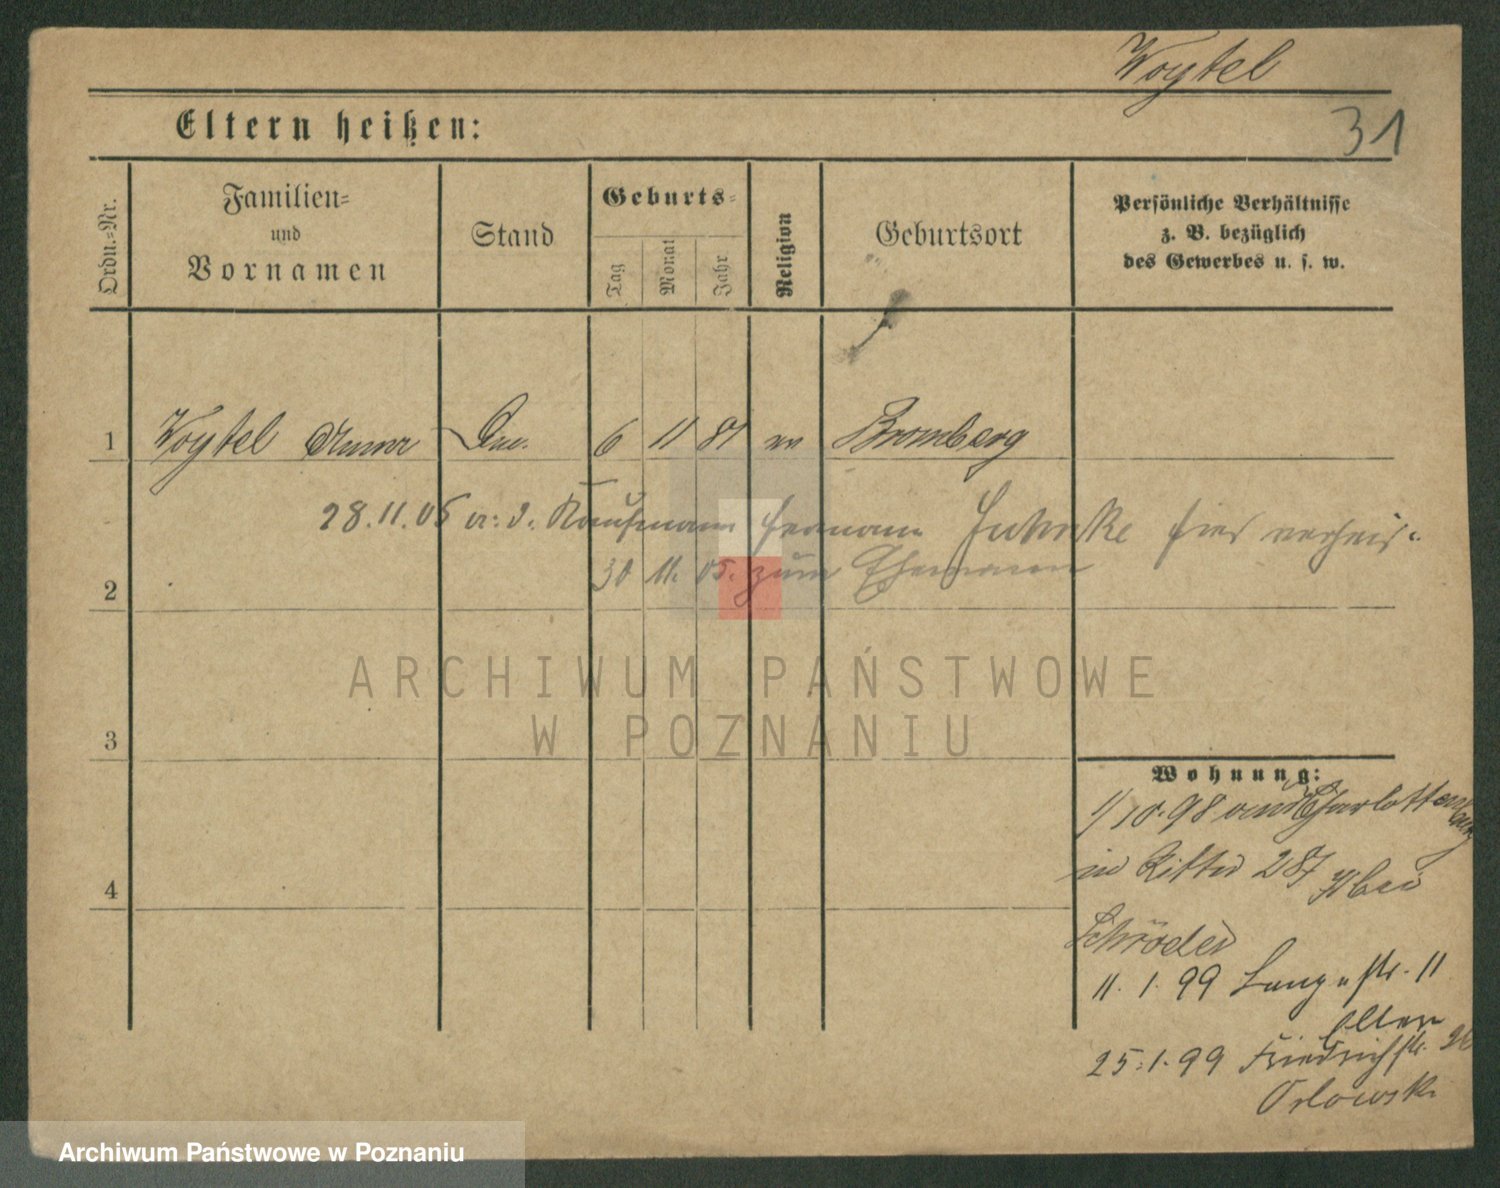 Woytel
31
Eltern heißen:
Ordn.-Nr.
Familien-
und
Vornamen
Stand
Geburts-
Tag
Monat
Jahr
Religion
Geburtsort
Persönliche Verhältnisse
z. B. bezüglich
des Gewerbes u. s. w.
1 Woytel Anna 6 11 81 ev Bromberg
28.11.05 Kaufmann Hermann hier
2 30 11. 05. zum Ehemann
ARCHIWUM PAŃSTWOWE
W POZNANIU
3
Wohnung:
1/10.98 aus Charlottenburg
in Ritter bei
4
Schröder
11. 1. 99 Lange str. 11
Eltern
25.1.99 Friedrichstr.
Orlowski
Archiwum Państwowe w Poznaniu